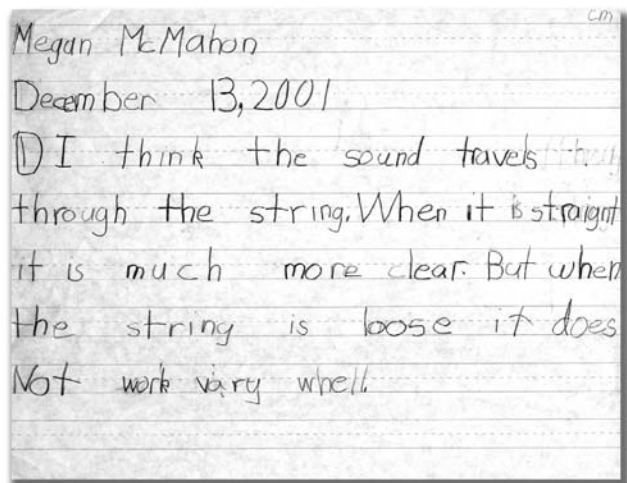 cm
Megan McMahon
December 13, 2001
1) I think the sound travels
through the string. When it is straight
it is much more clear. But when
the string is loose it does
Not work vary whell.